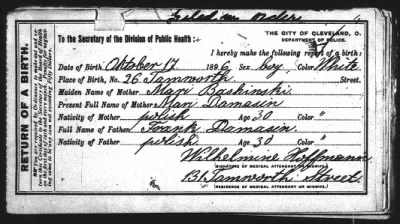 Filed in order
THE CITY OF CLEVELAND, O.
DEPARTMENT OF POLICE.
To the Secretary of the Division of Public Health:
I hereby make the following report of a birth:
Date of Birth, Oktober 17 1896 Sex boy Color White
Place of Birth, No. 26 Tamworth Street.
Maiden Name of Mother Mari Baskinski
Present Full Name of Mother Mari Damasin
Nativity of Mother polish Age 30 Color "
Full Name of Father Frank Damasin
Nativity of Father polish Age 30 Color "
Wilhelmine Hoffmann
(SIGNATURE OF MEDICAL ATTENDANT OR MIDWIFE.)
131 Tamworth Street
(RESIDENCE OF MEDICAL ATTENDANT OR MIDWIFE.)
RETURN OF A BIRTH.